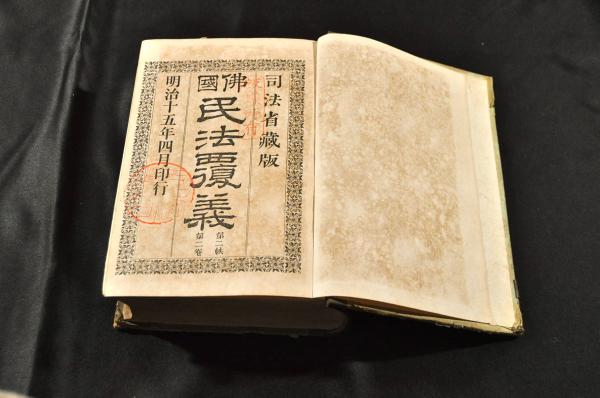 司法省藏版
佛國
民法覆義
第二帙
第二卷
明治十五年四月印行